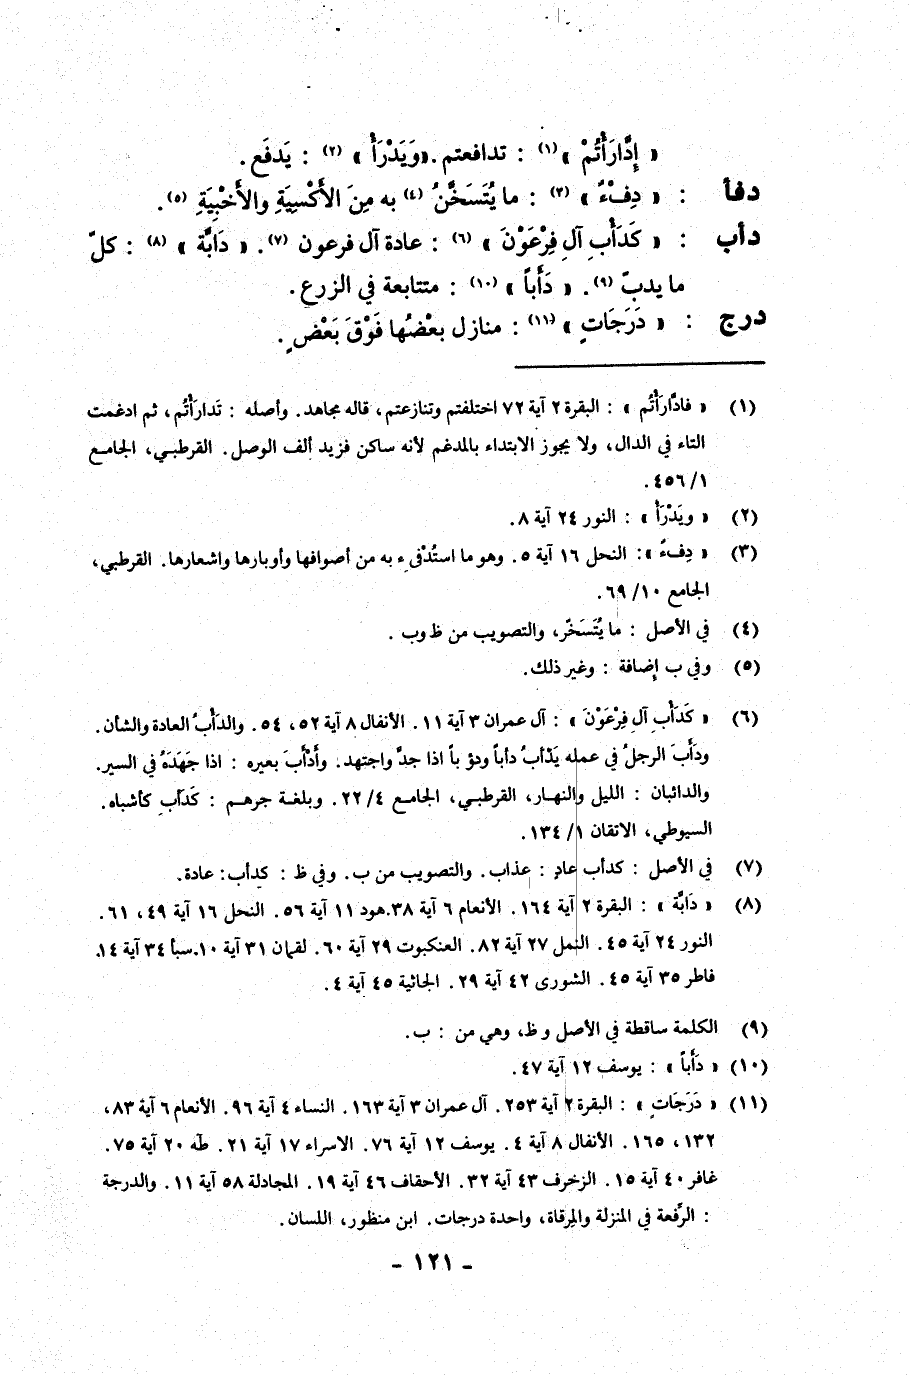 « إِدَّارَأْتُمْ »(١) : تدافعتم . «وَيَدْرَأُ » (٢) : يَدفَع .
دفأ : « دِفْءٌ » (٣) : ما يُتَسَخَّنُ (٤) به مِنَ الأَكْسِيَةِ والأَخْبِيَةِ (٥) .
دأب : « كَدَأْبِ آلِ فِرْعَوْنَ » (٦) : عادة آل فرعون (٧) . « دَابَّة » (٨) : كلّ
ما يدبّ (٩) . « دَأَباً » (١٠) : متتابعة في الزرع .
درج : « دَرَجَاتٍ » (١١) : منازل بعْضُها فَوْقَ بَعْضٍ .
(١) « فادّارَأْتُم » : البقرة ٢ آية ٧٢ اختلفتم وتنازعتم ، قاله مجاهد . وأصله : تَدارَأْتُم ، ثم ادغمت
التاء في الدال ، ولا يجوز الابتداء بالمدغم لأنه ساكن فزيد ألف الوصل . القرطبي ، الجامع
١/ ٤٥٦ .
(٢) « ويَدْرَأُ » : النور ٢٤ آية ٨ .
(٣) « دِفءٌ » : النحل ١٦ آية ٥ . وهو ما استُدْفىء به من أصوافها وأوبارها واشعارها . القرطبي ،
الجامع ١٠/ ٦٩ .
(٤) في الأصل : ما يُتَسَخّر ، والتصويب من ظ وب .
(٥) وفي ب إضافة : وغير ذلك .
(٦) « كَدَأْبِ آلِ فِرْعَوْنَ » : آل عمران ٣ آية ١١ . الأنفال ٨ آية ٥٢ ، ٥٤ . والدَأْبُ العادة والشأن .
ودَأَبَ الرجلُ في عمله يَدْأَبُ دأباً ودؤ باً اذا جدَّ واجتهد . وأَدْأَبَ بعيره : اذا جَهَدَهُ في السير .
والدائبان : الليل والنهار ، القرطبي ، الجامع ٤/ ٢٢ . وبلغة جرهم : كَدَأبِ كأشباه .
السيوطي ، الاتقان ١/ ١٣٤ .
(٧) في الأصل : كدأب عادٍ : عذاب . والتصويب من ب . وفي ظ : كدأب : عادة .
(٨) « دَابَّة » : البقرة ٢ آية ١٦٤ . الأنعام ٦ آية ٣٨ . هود ١١ آية ٥٦ . النحل ١٦ آية ٤٩ ، ٦١ .
النور ٢٤ آية ٤٥ . النمل ٢٧ آية ٨٢ . العنكبوت ٢٩ آية ٦٠ . لقمان ٣١ آية ١٠ . سبأ ٣٤ آية ١٤ .
فاطر ٣٥ آية ٤٥ . الشورى ٤٢ آية ٢٩ . الجاثية ٤٥ آية ٤ .
(٩) الكلمة ساقطة في الأصل و ظ ، وهي من : ب .
(١٠) « دَأَباً » : يوسف ١٢ آية ٤٧ .
(١١) « دَرَجَاتٍ » : البقرة ٢ آية ٢٥٣ . آل عمران ٣ آية ١٦٣ . النساء ٤ آية ٩٦ . الأنعام ٦ آية ٨٣ ،
١٣٢ ، ١٦٥ . الأنفال ٨ آية ٤ . يوسف ١٢ آية ٧٦ . الاسراء ١٧ آية ٢١ . طه ٢٠ آية ٧٥ .
غافر ٤٠ آية ١٥ . الزخرف ٤٣ آية ٣٢ . الأحقاف ٤٦ آية ١٩ . المجادلة ٥٨ آية ١١ . والدرجة
: الرِّفعة في المنزلة والمِرقاة ، واحدة درجات . ابن منظور ، اللسان .
- ١٢١ -